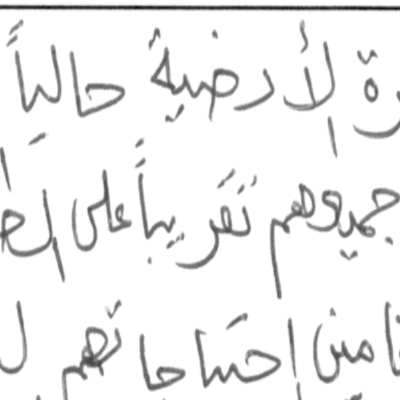 الأرضية حالياً
جميعهم تقريباً على
من احتياجاتهم